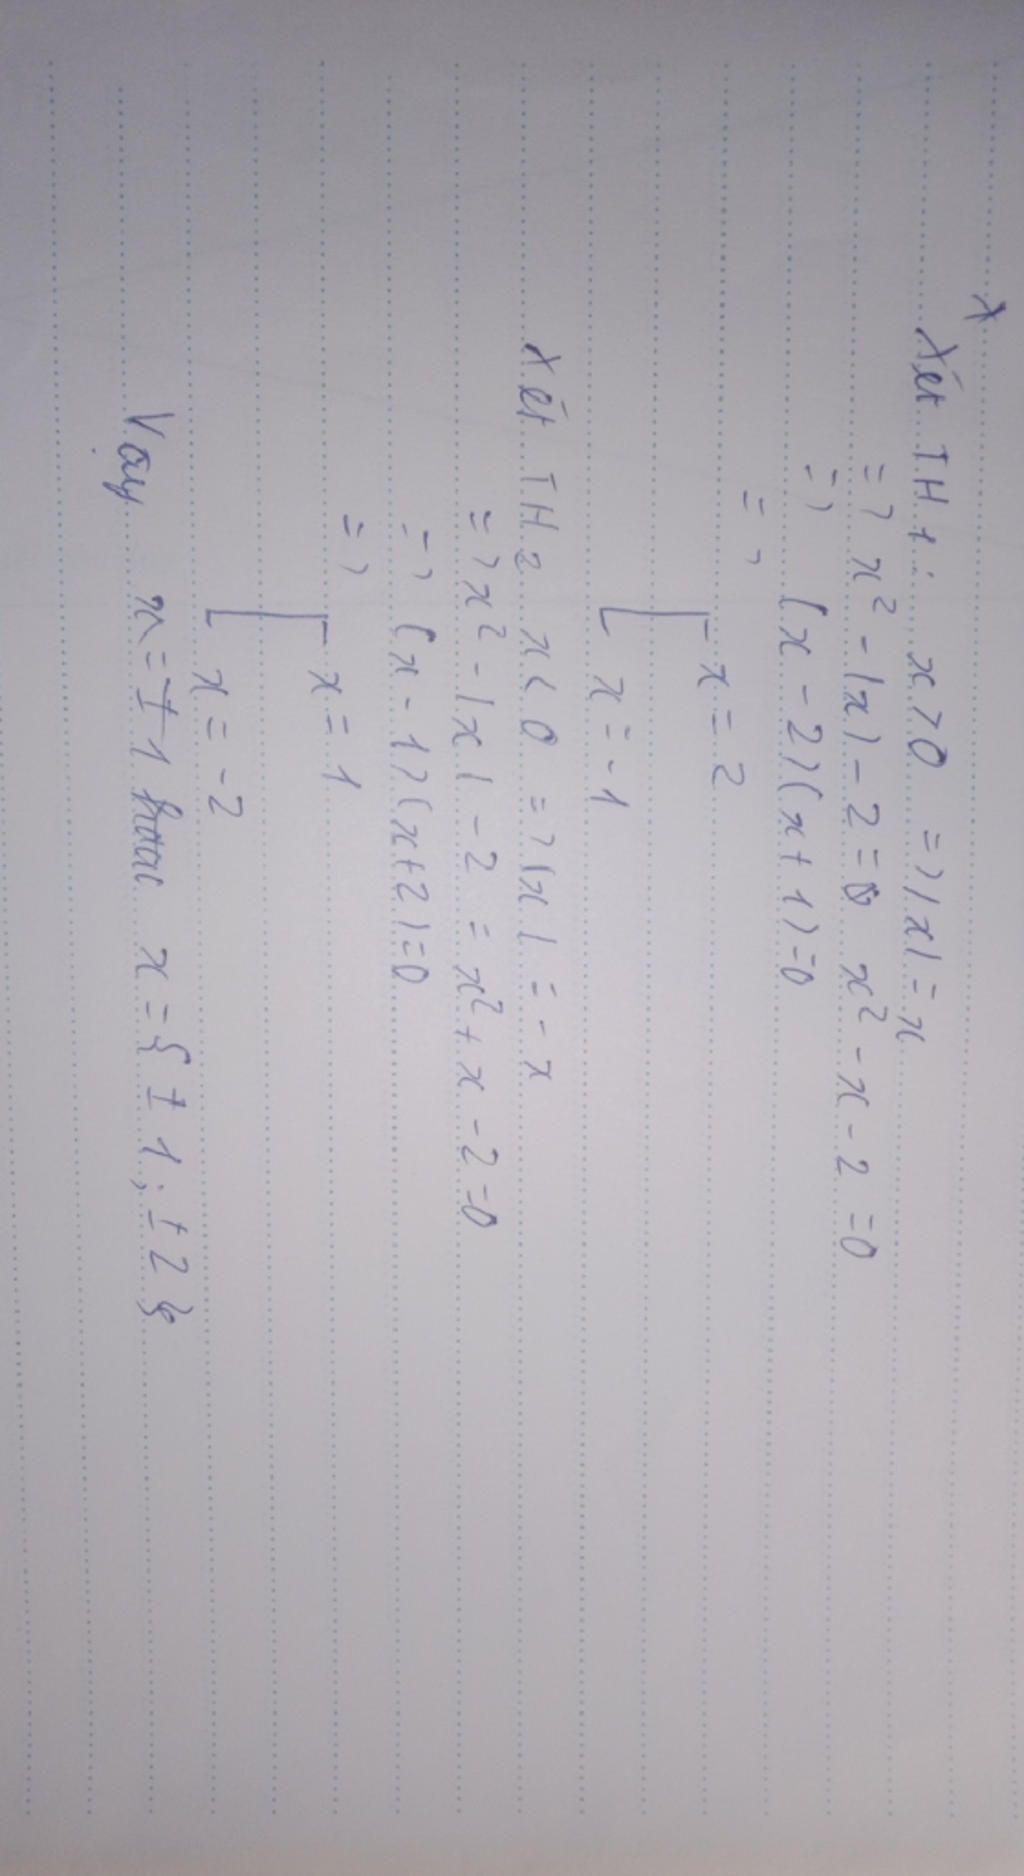 Xét TH1: x > 0 => |x| = x
=> x² - |x| - 2 = 0 x² - x - 2 = 0
=> (x - 2)(x + 1) = 0
=>
x = 2
x = -1
Xét TH2 x < 0 => |x| = -x
=> x² - |x| - 2 = x² + x - 2 = 0
=> (x - 1)(x + 2) = 0
=>
x = 1
x = -2
Vậy x = ± 1 hoặc x = { ± 1; ± 2 }